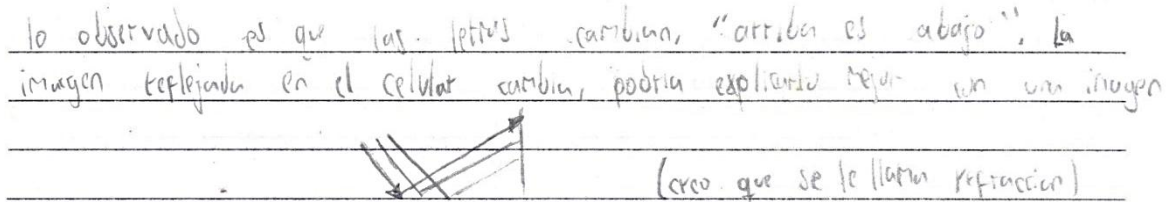 lo observado es que las letras cambian, "arriba es abajo". La
imagen reflejada en el celular cambia, podria explicarlo mejor con una imagen
(creo que se le llama refraccion)